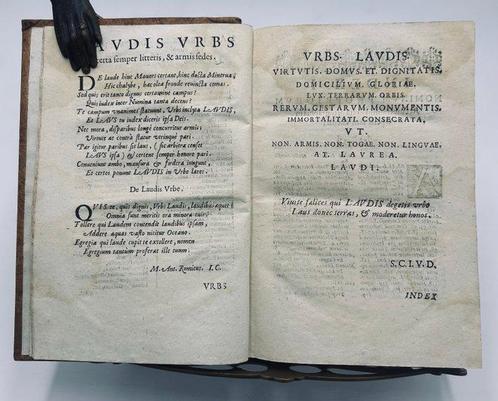 LAVDIS VRBS
certa semper litteris, & armis sedes.
DE laude hinc Mauors certant, hinc docta Minerua,
Hic chalybe, hac olea fronde reuincta comas.
Sed quis erit tanto dignus certamine campus?
Quis iudex inter Numina tanta decens?
Te campum vnanimes statuunt, Vrbs inclyta LAVDIS,
Et LAVS tu iudex diceris ipsa Deis.
Nec mora, disparibus longè concurritur armis;
Virtute at contrà statur vtrinque pari.
Par igitur partibus sit laus,
LAVS ipsa; & certent semper honore pari.
Conueniunt ambo, mansura & fœdera iungunt,
Et certos ponunt LAVDIS in Vrbe lares.
De Laudis Vrbe.
QVis te, quis dignè, Vrbs Laudis, laudibus aquet?
Omnia sunt meritis ora minora tuis.
Tollere qui Laudem contendit laudibus ipsam,
Addere aquas vasto nititur Oceano.
Egregia qui laude cupit te extollere, nomen
Egregium tantùm proferat ille tuum.
M. Ant. Remicus. I. C.
VRBS
VRBS. LAVDIS.
VIRTVTIS. DOMVS. ET. DIGNITATIS.
DOMICILIVM. GLORIAE.
LVX. TERRARVM. ORBIS.
RERVM. GESTARVM. MONVMENTIS.
IMMORTALITATI. CONSECRATA.
VT.
NON. ARMIS. NON. TOGAE. NON. LINGVAE.
AT. LAVREA.
LAVDI.
Viuite fælices qui LAVDIS degitis vrbe
Laus donec terras, & moderetur honos.
S. C. L. V. D.
INDEX